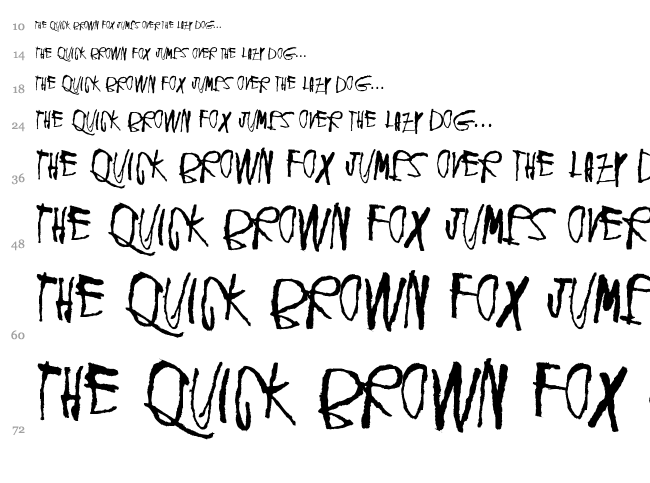 10 THE QUICK BROWN FOX JUMPS OVER THE LAZY DOG...
14 THE QUICK BROWN FOX JUMPS OVER THE LAZY DOG...
18 THE QUICK BROWN FOX JUMPS OVER THE LAZY DOG...
24 THE QUICK BROWN FOX JUMPS OVER THE LAZY DOG...
36 THE QUICK BROWN FOX JUMPS OVER THE LAZY D
48 THE QUICK BROWN FOX JUMPS OVER
60 THE QUICK BROWN FOX JUMP
72 THE QUICK BROWN FOX